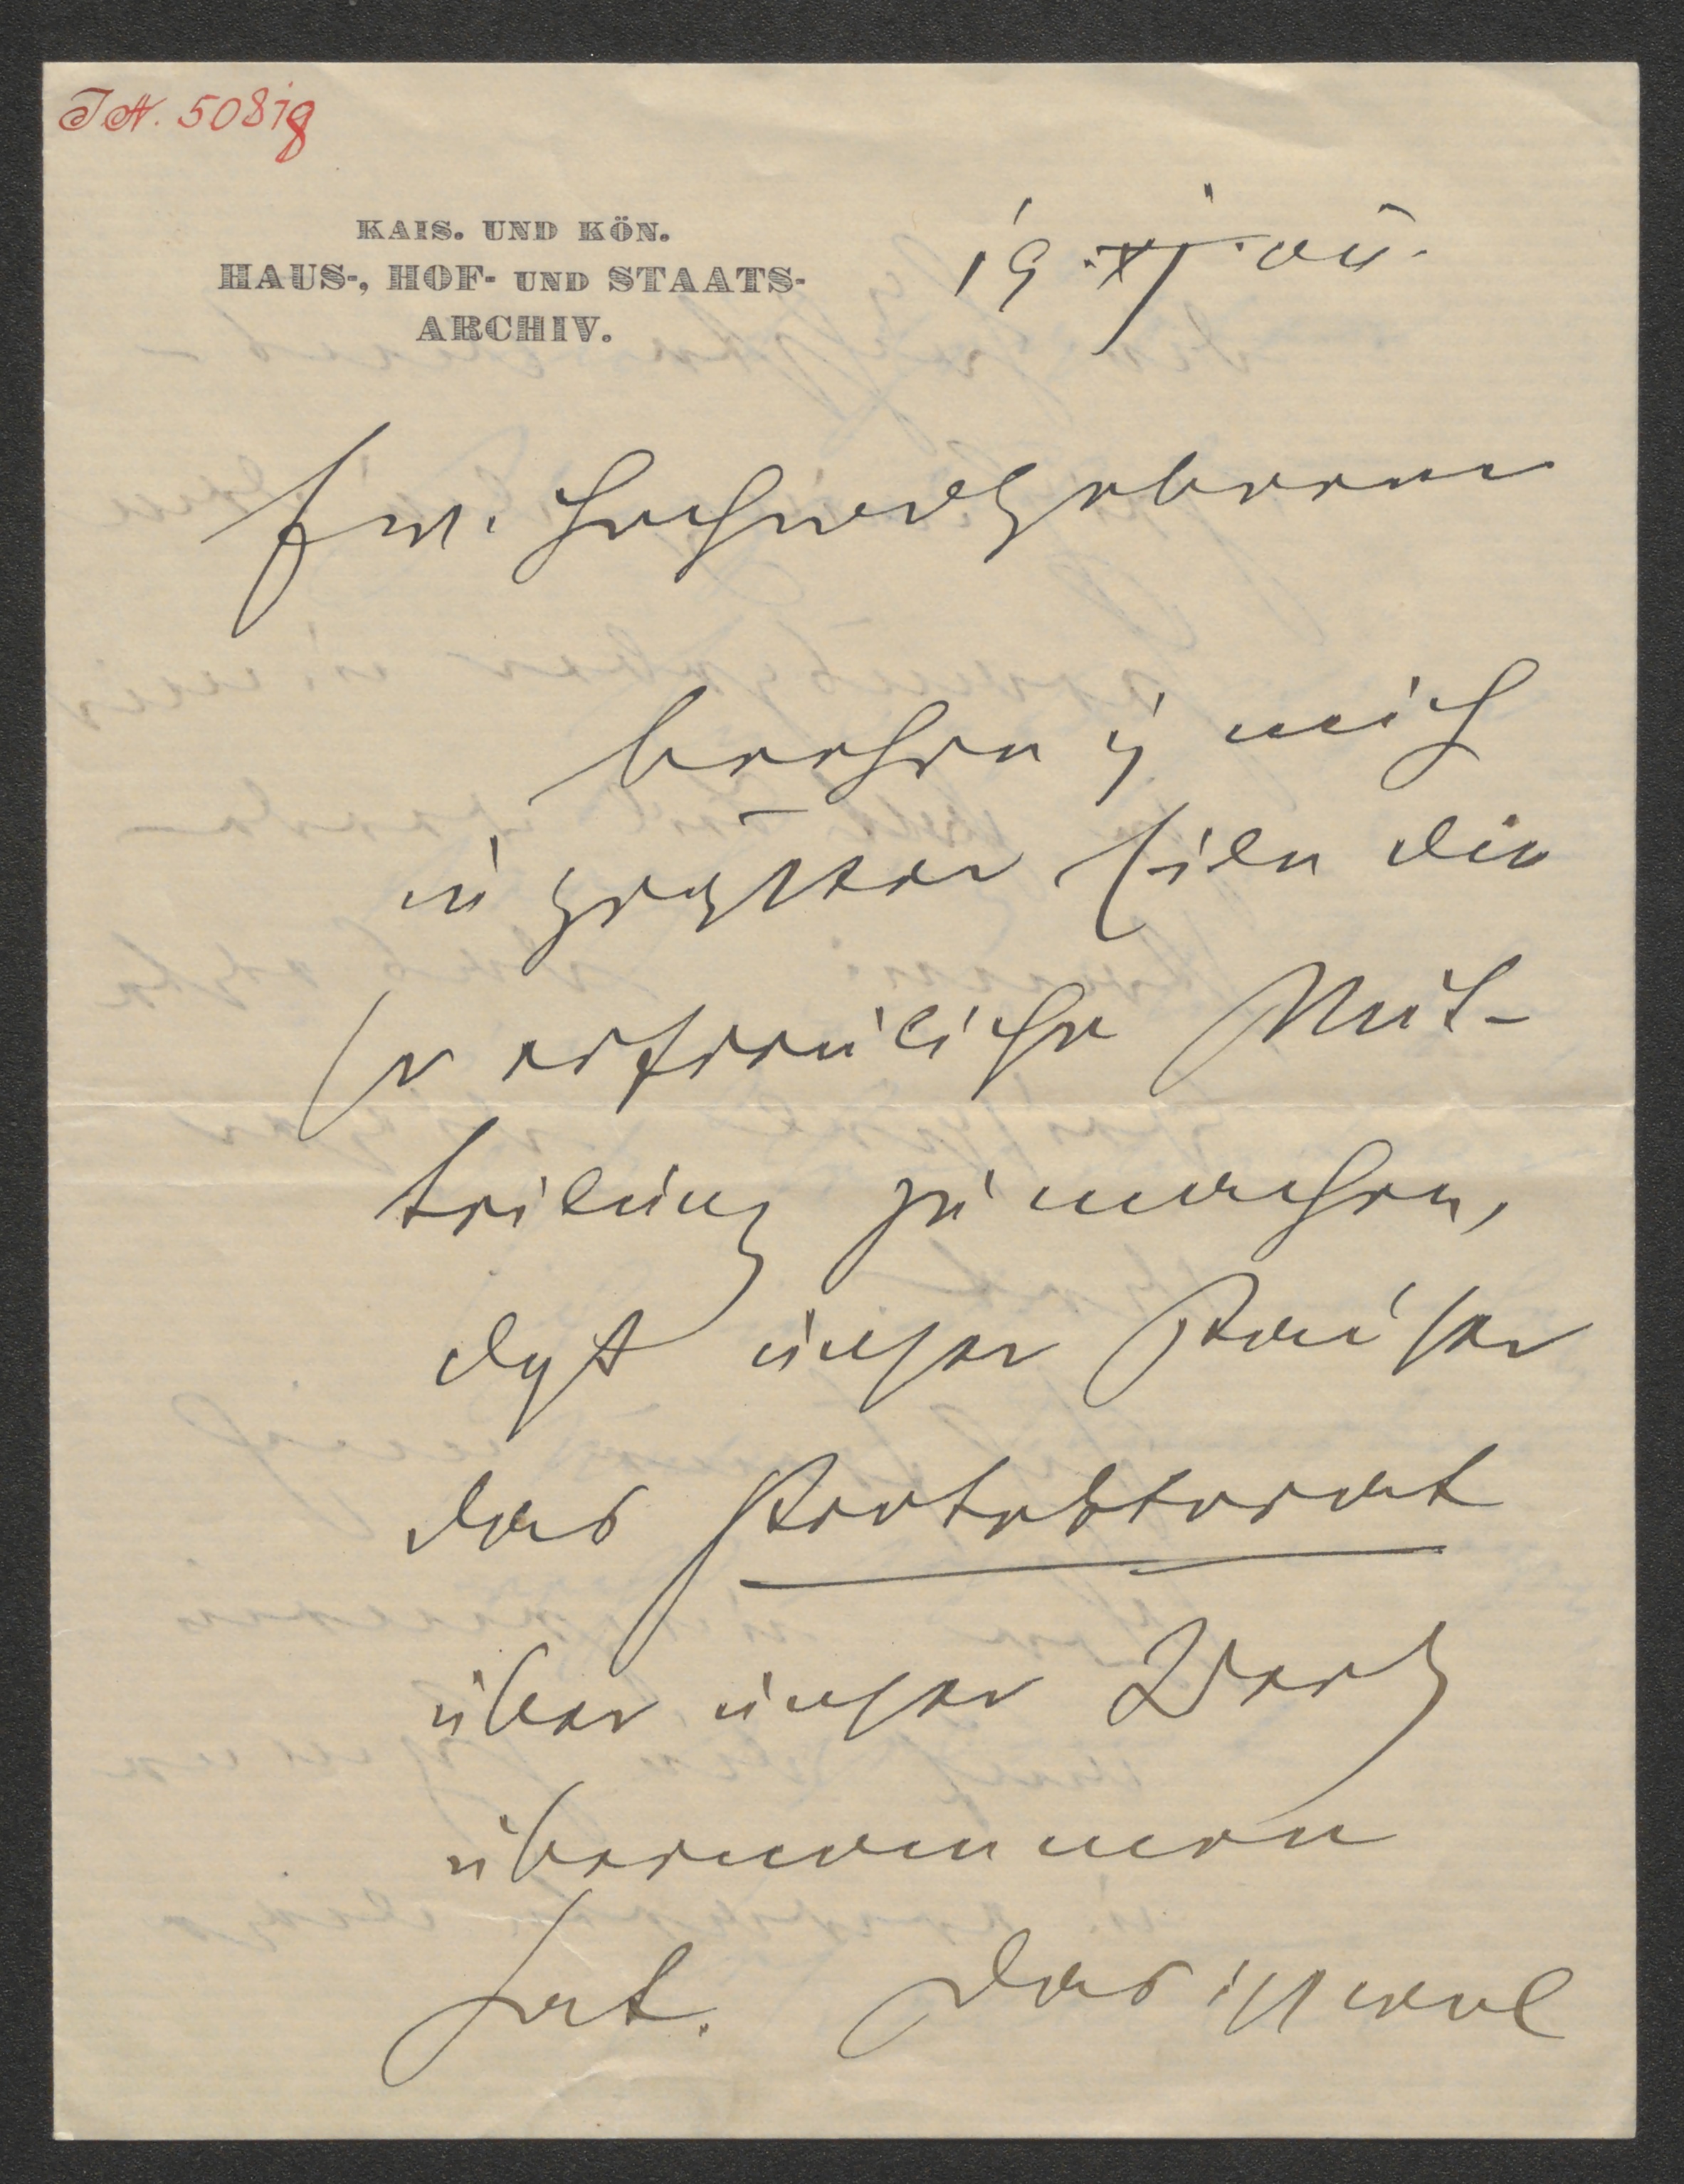 IN. 50819
KAIS. UND KÖN.
HAUS-, HOF- UND STAATS-
ARCHIV.
19. XI.
Ew. Hochwolgeboren
beehre ich mich
in größter Eile die
so erfreuliche Mit-
teilung zu machen,
dass unser Kaiser
das Protektorat
über unser Werk
übernommen
hat. Das ist wol